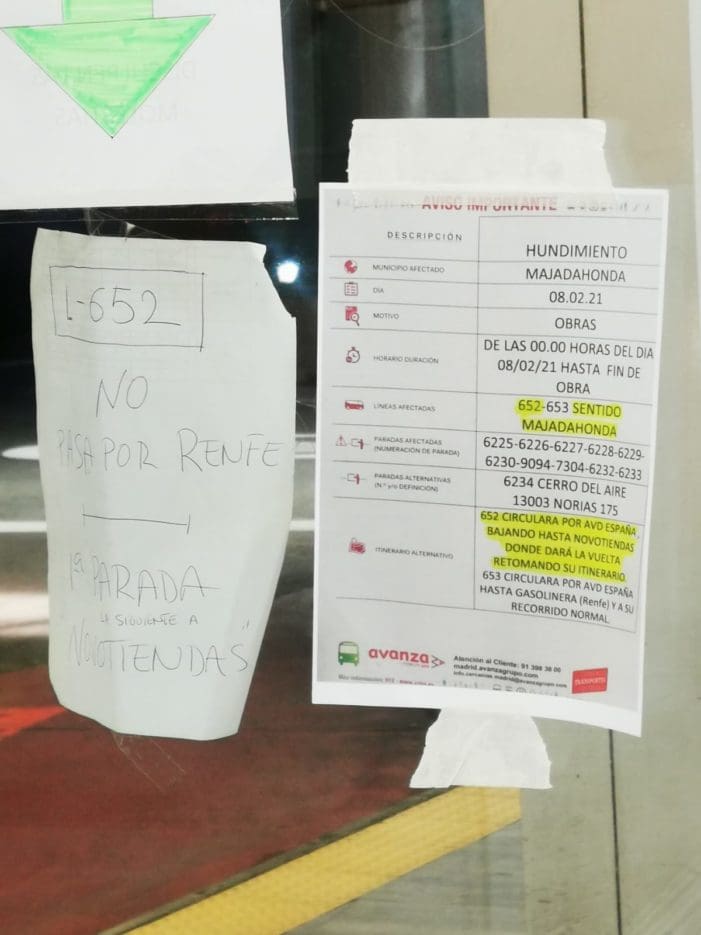 L-652
NO
PASA POR RENFE
1ª PARADA
LA SIGUIENTE A
NOVOTIENDAS"
AVISO IMPORTANTE
DESCRIPCIÓN
HUNDIMIENTO
MUNICIPIO AFECTADO
MAJADAHONDA
DIA
08.02.21
MOTIVO
OBRAS
HORARIO DURACIÓN
DE LAS 00.00 HORAS DEL DIA
08/02/21 HASTA FIN DE
OBRA
LÍNEAS AFECTADAS
652-653 SENTIDO
MAJADAHONDA
PARADAS AFECTADAS
(NUMERACIÓN DE PARADA)
6225-6226-6227-6228-6229-
6230-9094-7304-6232-6233
PARADAS ALTERNATIVAS
(N.º y/o DEFINICIÓN)
6234 CERRO DEL AIRE
13003 NORIAS 175
ITINERARIO ALTERNATIVO
652 CIRCULARA POR AVD ESPAÑA,
BAJANDO HASTA NOVOTIENDAS
DONDE DARÁ LA VUELTA
RETOMANDO SU ITINERARIO.
653 CIRCULARA POR AVD ESPAÑA
HASTA GASOLINERA (Renfe) Y A SU
RECORRIDO NORMAL
avanza
Atención al Cliente: 91 398 38 00
madrid.avanzagrupo.com
info.cercanias.madrid@avanzagrupo.com
Más información: 012